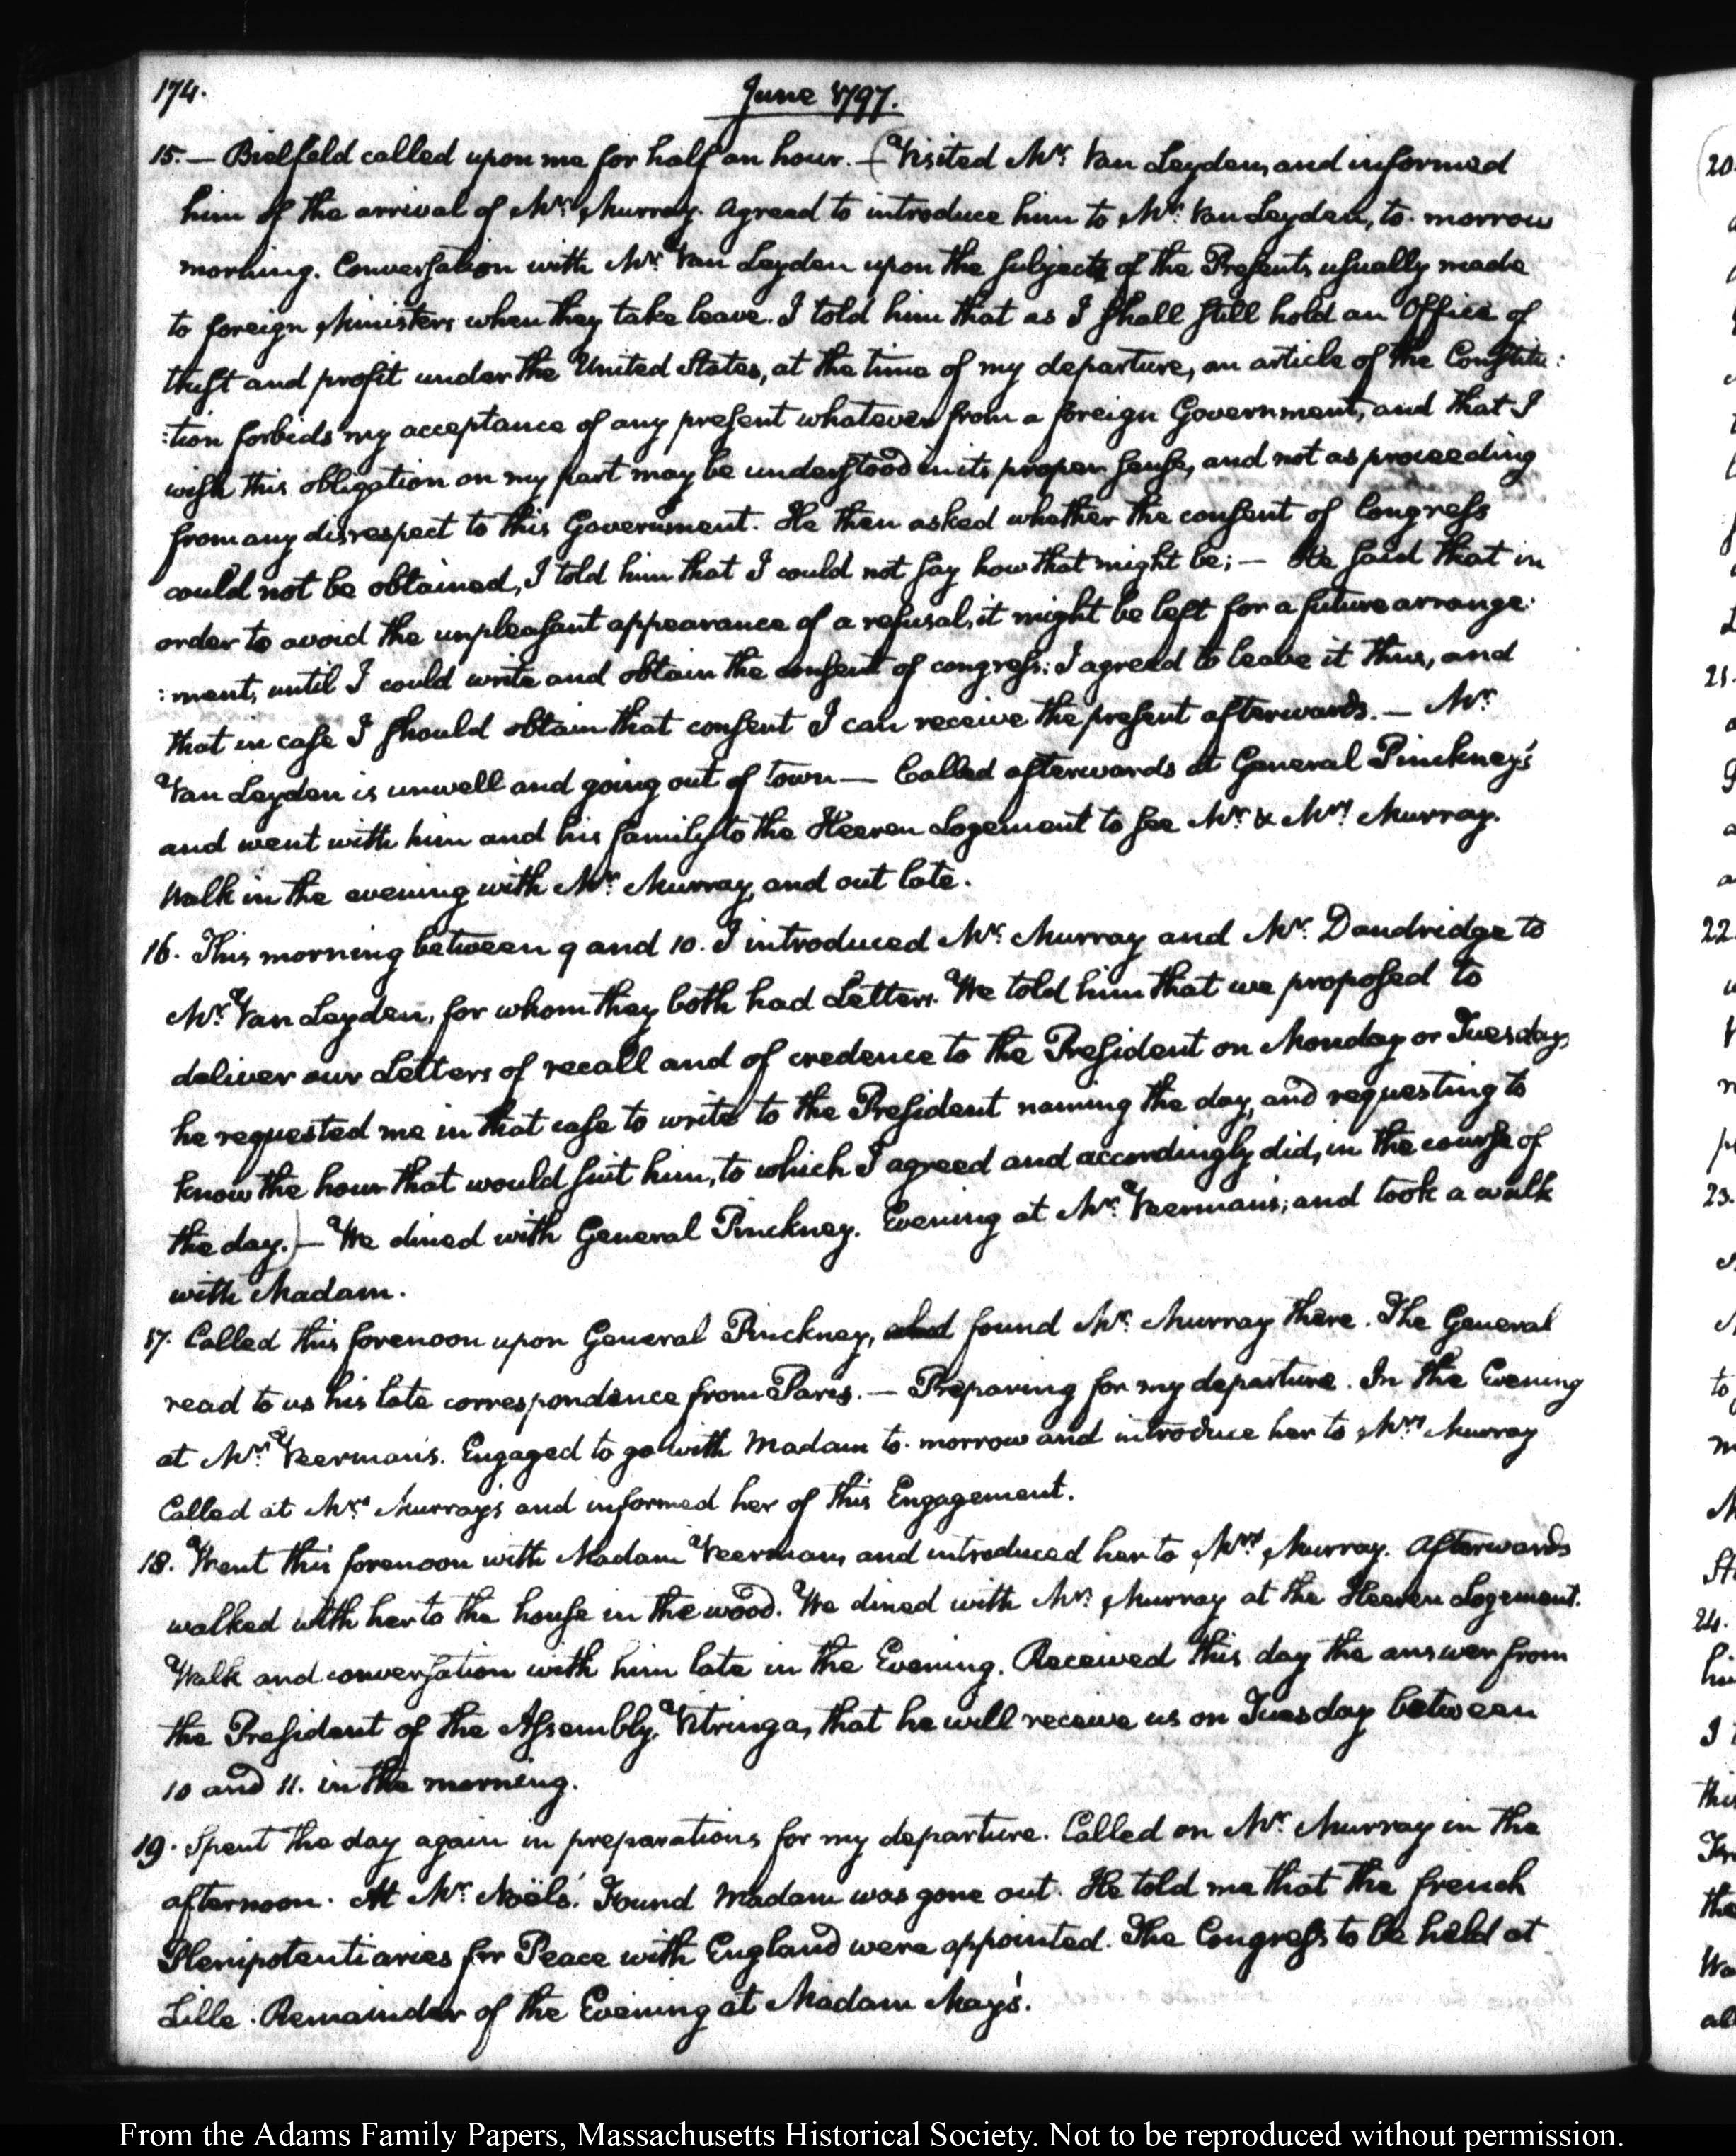 174.
June 1797.
15. — Bielfeld called upon me for half an hour. — (Visited Mr. Van Leyden, and informed
him of the arrival of Mr. Murray. Agreed to introduce him to Mr. Van Leyden, to-morrow
morning. Conversation with Mr. Van Leyden upon the subject of the Presents usually made
to foreign Ministers when they take leave. I told him that as I shall still hold an Office of
trust and profit under the United States, at the time of my departure, an article of the Constitu:
:tion forbids my acceptance of any present whatever from a foreign Government, and that I
wish this obligation on my part may be understood in its proper sense, and not as proceeding
from any disrespect to this Government. He then asked whether the consent of Congress
could not be obtained, I told him that I could not say how that might be; — He said that in
order to avoid the unpleasant appearance of a refusal, it might be left for a future arrange:
:ment, until I could write and obtain the consent of congress: I agreed to leave it thus, and
that in case I should obtain that consent I can receive the present afterwards. — Mr.
Van Leyden is unwell and going out of town — Called afterwards at General Pinckney's
and went with him and his family to the Heeren Logement to see Mr. & Mrs. Murray.
Walk in the evening with Mr. Murray, and out late.
16. This morning between 9 and 10. I introduced Mr. Murray and Mr. Dandridge to
Mr. Van Leyden, for whom they both had Letters. We told him that we proposed to
deliver our Letters of recall and of credence to the President on Monday or Tuesday,
he requested me in that case to write to the President naming the day, and requesting to
know the hour that would suit him, to which I agreed and accordingly did, in the course of
the day.) — We dined with General Pinckney. Evening at Mr. Veerman's; and took a walk
with Madam.
17. Called this forenoon upon General Pinckney, found Mr. Murray there. The General
read to us his late correspondence from Paris. — Preparing for my departure. In the Evening
at Mr. Veerman's. Engaged to go with Madam to-morrow and introduce her to Mrs. Murray
Called at Mrs. Murray's and informed her of this Engagement.
18. Went this forenoon with Madam Veerman, and introduced her to Mrs. Murray. Afterwards
walked with her to the house in the wood. We dined with Mr. Murray at the Heeren Logement.
Walk and conversation with him late in the Evening. Received this day the answer from
the President of the Assembly, Vitringa, that he will receive us on Tuesday between
10 and 11. in the morning.
19. Spent the day again in preparations for my departure. Called on Mr. Murray in the
afternoon. At Mr. Noëls'. Found Madam was gone out. He told me that the french
Plenipotentiaries for Peace with England were appointed. The Congress to be held at
Lille. Remainder of the Evening at Madam May's.
20.
21.
22
23.
24.
From the Adams Family Papers, Massachusetts Historical Society. Not to be reproduced without permission.